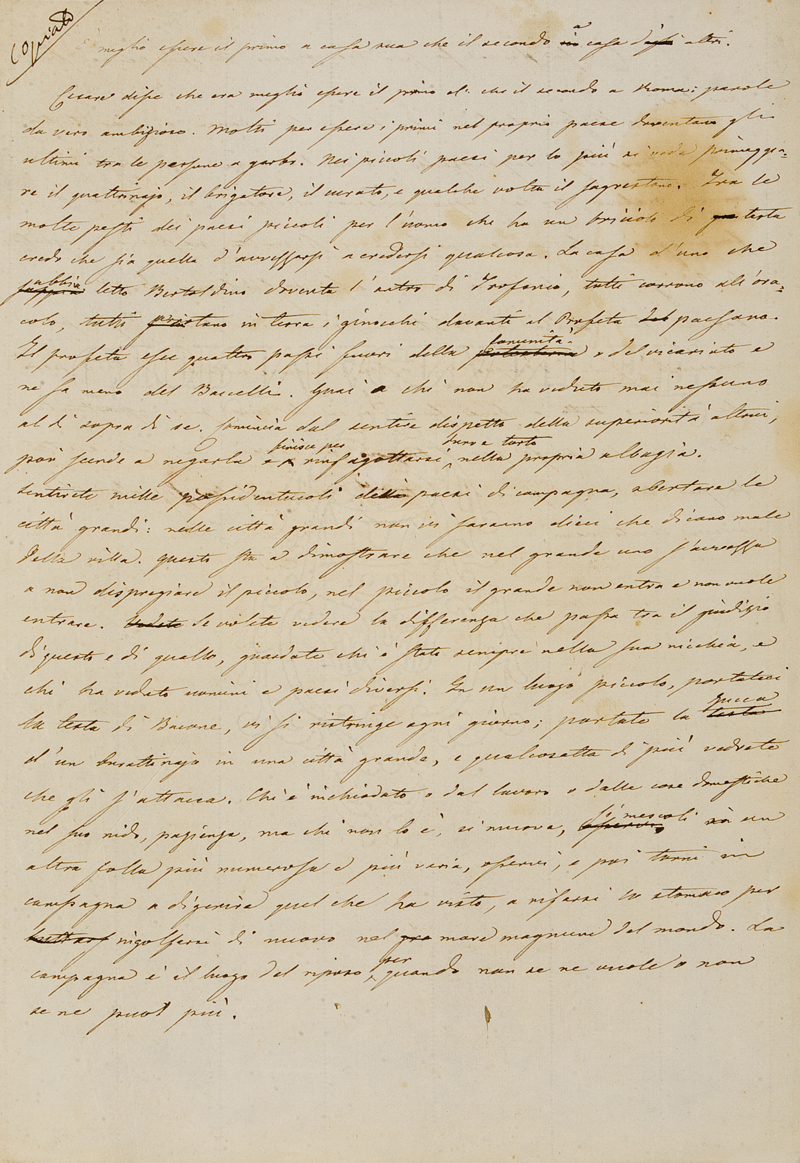 Copiato
meglio essere il primo a casa sua che il secondo a casa d'altri.
Cesare disse che era meglio essere il primo che il secondo a Roma: parole
da vero ambizioso. Molti per essere i primi nel proprio paese diventano gli
ultimi tra le persone a garbo. Nei piccoli paesi per lo più si vede primeggia-
re il quattrinajo, il brigatore, il curato, e qualche volta il sagrestano. Tra le
molte pesti dei paesi piccoli per l'uomo che ha un briciolo di testa
credo che sia quella d'avvezzarsi a credersi qualcosa. La casa d'uno che
abbia letto Bertoldino diventa l'antro di Trofonio, tutti corrono all'ora-
colo, tutti in terra i ginocchi davanti al Profeta paesano.
Il profeta esce quattro passi fuori della comunità o del vicariato e
ne sa meno del Baccelli. Guai a chi non ha veduto mai nessuno
al di sopra di se. Comincia dal sentire dispetto della superiorità altrui,
poi scende a negarla e finisce per rinfagottarsi duro e torto nella propria albagia.
Sentirete mille possidentucoli dei paesi di campagna, abortare le
città grandi: nelle città grandi non vi saranno dieci che dicano male
della villa. Questo sta a dimostrare che nel grande uno s'avvezza
a non dispregiare il piccolo, nel piccolo il grande non entra e non vuole
entrare. Vedete Se volete vedere la differenza che passa tra il giudizio
di questo e di quello, guardate chi è stato sempre nella sua nicchia, e
chi ha veduto uomini e paesi diversi. In un luogo piccolo, portateci
la testa di Bacone, vi si ristringe ogni giorno; portate la zucca testa
d'un burattinajo in una città grande, e qualcosetta di più vedrete
che gli s'attacca. Chi è inchiodato o dal lavoro o dalle cose domestiche
nel suo nido, pazienza, ma chi non lo è, si muova, si mescoli a un
altra folla più numerosa e più varia, osservi, e poi torni in
campagna a digerire quel che ha visto, a rifarsi lo stomaco per
ringolfarsi di nuovo nel mare magnum del mondo. La
campagna è il luogo del riposo per quando non se ne vuole o non
se ne puol più.